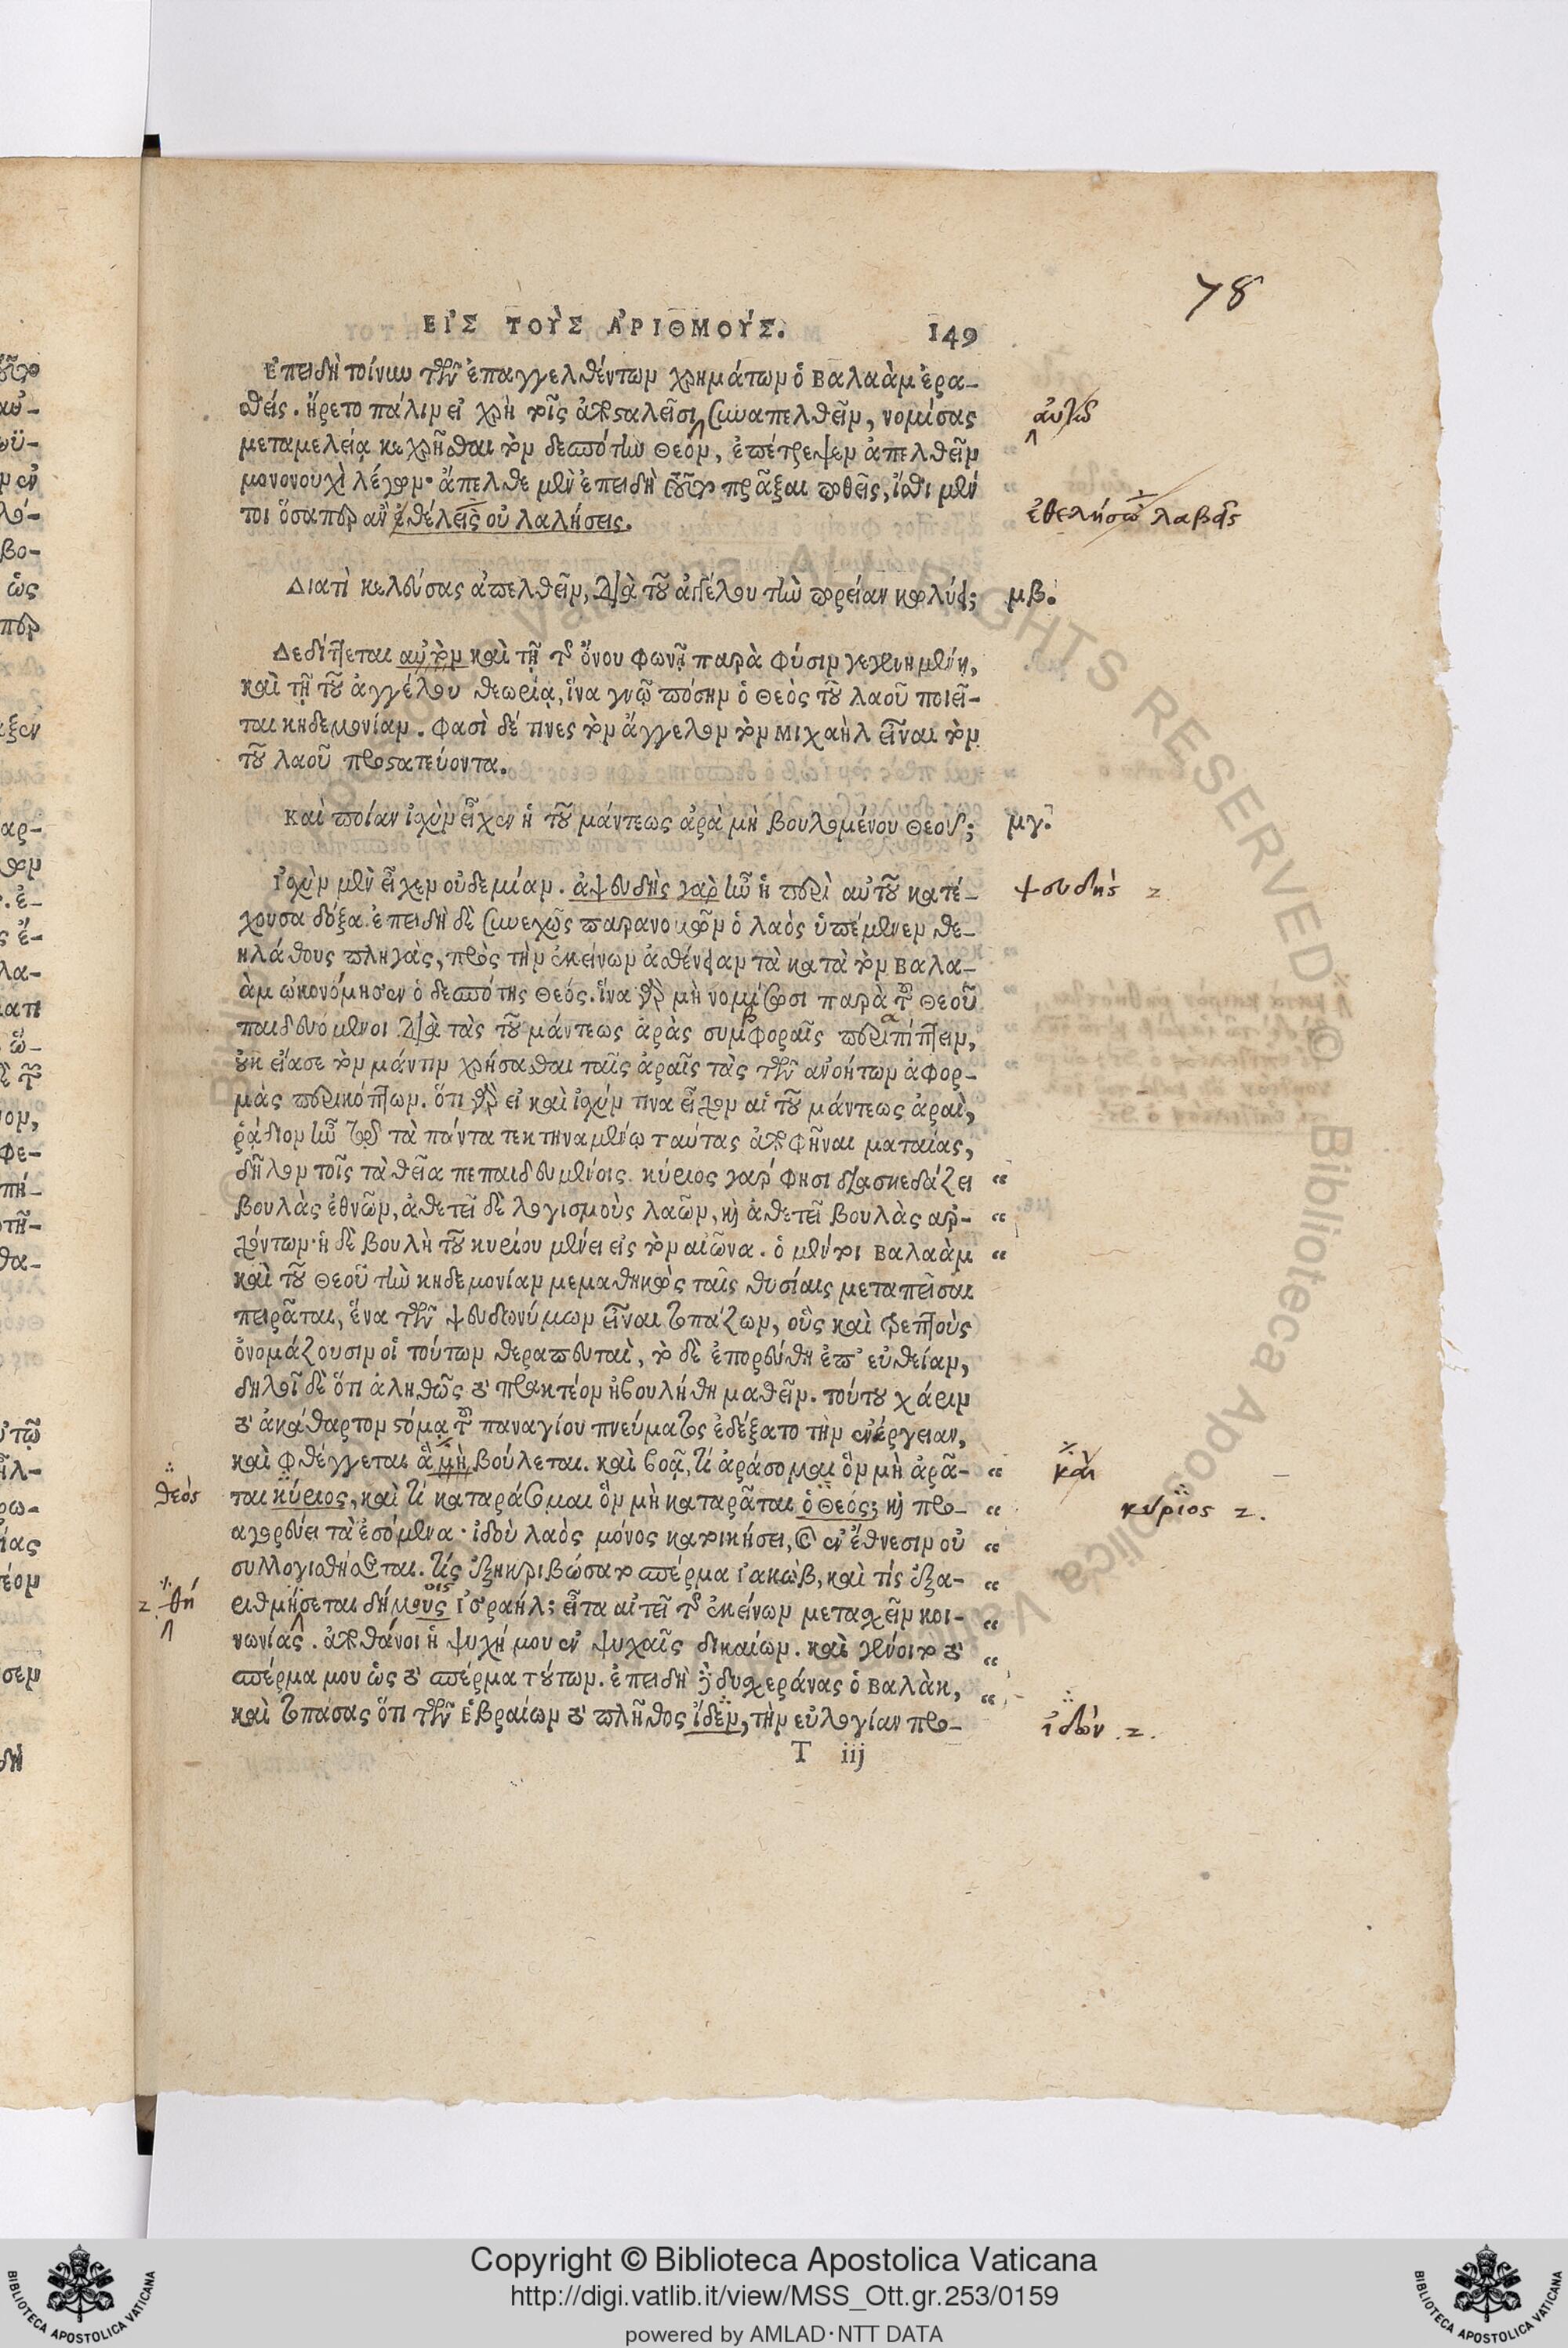 78
ΕΙ᾿Σ ΤΟῪΣ ΑΡΙΘΜΟΎΣ. 149
Ἐπειδὴ τοίνυν τῶν ἐπαγγελθέντων χρημάτων ὁ Βαλαὰμ ἐρα-
σθεὶς. ἤρετο πάλιν εἰ χρὴ τοῖς ἀποσταλεῖσι συναπελθεῖν, νομίσας
μεταμελείᾳ κεχρῆσθαι τὸν δεσπότην Θεὸν, ἐπέτρεψεν ἀπελθεῖν
μονονουχὶ λέγων· ἄπελθε μὲν ἐπειδὴ τοῦτο πρᾶξαι ποθεῖς, ἴσθι μέν
τοι ὅσαπερ ἂν ἐθέλεις οὐ λαλήσεις.
ἐθελήσω λαβὰς
Διατὶ κελεύσας ἀπελθεῖν, διὰ τοῦ ἀγγέλου τὴν πορείαν κωλύει; μβ.
Δεδίττεται αὐτὸν καὶ τῇ τῆς ὄνου φωνῇ παρὰ φύσιν γεγενημένῃ,
καὶ τῇ τοῦ ἀγγέλου θεωρίᾳ, ἵνα γνῷ πόσην ὁ Θεὸς τοῦ λαοῦ ποιεῖ-
ται κηδεμονίαν. Φασὶ δέ τινες τὸν ἄγγελον τὸν Μιχαὴλ εἶναι τὸν
τοῦ λαοῦ προστατεύοντα.
Καὶ ποίαν ἰσχὺν εἶχεν ἡ τοῦ μάντεως ἀρὰ μὴ βουλομένου Θεοῦ; μγ.
Ἰσχὺν μὲν εἶχεν οὐδεμίαν. ἀψευδὴς γὰρ ἦν ἡ περὶ αὐτοῦ κατέ- ψευδὴς 2
χουσα δόξα. ἐπειδὴ δὲ συνεχῶς παρανομῶν ὁ λαὸς ὑπέμενεν θε-
ηλάτους πληγὰς, πρὸς τὴν ἐκείνων ἀσθένειαν τὰ κατὰ τὸν Βαλα-
ὰμ ᾠκονόμησεν ὁ δεσπότης Θεός. ἵνα γὰρ μὴ νομίσωσι παρὰ τοῦ Θεοῦ
παιδευόμενοι διὰ τὰς τοῦ μάντεως ἀρὰς συμφοραῖς περιπίπτειν,
οὐκ εἴασε τὸν μάντιν χρήσασθαι ταῖς ἀραῖς τὰς τῶν ἀνοήτων ἀφορ-
μὰς περικόπτων. ὅτι γὰρ εἰ καὶ ἰσχύν τινα εἶχον αἱ τοῦ μάντεως ἀραὶ,
ῥᾴδιον ἦν τῷ τὰ πάντα τεκτηναμένῳ ταύτας ἀποφῆναι ματαίας,
δῆλον τοῖς τὰ θεῖα πεπαιδευμένοις. κύριος γάρ φησι διασκεδάζει “
βουλὰς ἐθνῶν, ἀθετεῖ δὲ λογισμοὺς λαῶν, καὶ ἀθετεῖ βουλὰς ἀρ- “
χόντων· ἡ δὲ βουλὴ τοῦ κυρίου μένει εἰς τὸν αἰῶνα. ὁ μέντοι Βαλαὰμ “
καὶ τοῦ Θεοῦ τὴν κηδεμονίαν μεμαθηκὼς ταῖς θυσίαις μεταπεῖσαι
πειρᾶται, ἕνα τῶν ψευδωνύμων εἶναι τοπάζων, οὓς καὶ τρεπτοὺς
ὀνομάζουσιν οἱ τούτων θεραπευταὶ, τὸ δὲ ἐπορεύθη ἐπ᾿ εὐθείαν,
δηλοῖ δὲ ὅτι ἀληθῶς τὸ πρακτέον ἠβουλήθη μαθεῖν. τούτου χάριν
τὸ ἀκάθαρτον στόμα τοῦ παναγίου πνεύματος ἐδέξατο τὴν ἐνέργειαν,
καὶ φθέγγεται ἃ μὴ βούλεται. καὶ βοᾷ, τί ἀράσομαι ὃν μὴ ἀρᾶ- “ καὶ
θεὸς ται κύριος, καὶ τί καταράσομαι ὃν μὴ καταρᾶται ὁ Θεός; καὶ προ- “ κύριος 2.
αγορεύει τὰ ἐσόμενα· ἰδοὺ λαὸς μόνος κατοικήσει, καὶ ἐν ἔθνεσιν οὐ “
συλλογισθήσεται. τίς ἐξηκριβώσατο σπέρμα Ἰακὼβ, καὶ τίς ἐξα- “
2. θή ριθμήσεται δήμους Ἰσραήλ; εἶτα αἰτεῖ τῆς ἐκείνων μετασχεῖν κοι- “
νωνίας. ἀποθάνοι ἡ ψυχή μου ἐν ψυχαῖς δικαίων. καὶ γένοιτο τὸ “
σπέρμα μου ὡς τὸ σπέρμα τούτων. ἐπειδὴ δὲ δυσχεράνας ὁ Βαλὰκ, “
καὶ τοπάσας ὅτι τῶν Ἑβραίων τὸ πλῆθος ἰδὲν, τὴν εὐλογίαν προ- ἰδὼν .2.
T iij
Copyright © Biblioteca Apostolica Vaticana
http://digi.vatlib.it/view/MSS_Ott.gr.253/0159
powered by AMLAD·NTT DATA